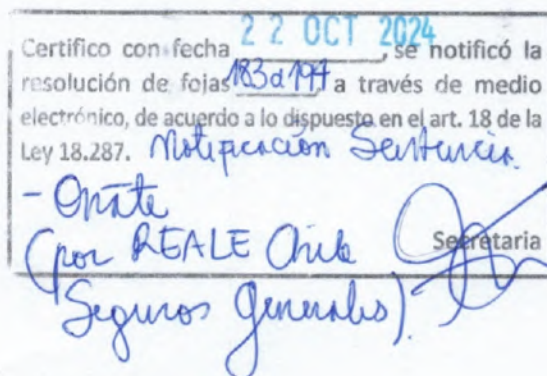 Certifico con fecha 22 OCT 2024, se notificó la
resolución de fojas 183 a 197 a través de medio
electrónico, de acuerdo a lo dispuesto en el art. 18 de la
Ley 18.287. Notificación Sentencia.
- Oñate
(por REALE Chile
Secretaria
Seguros Generales).